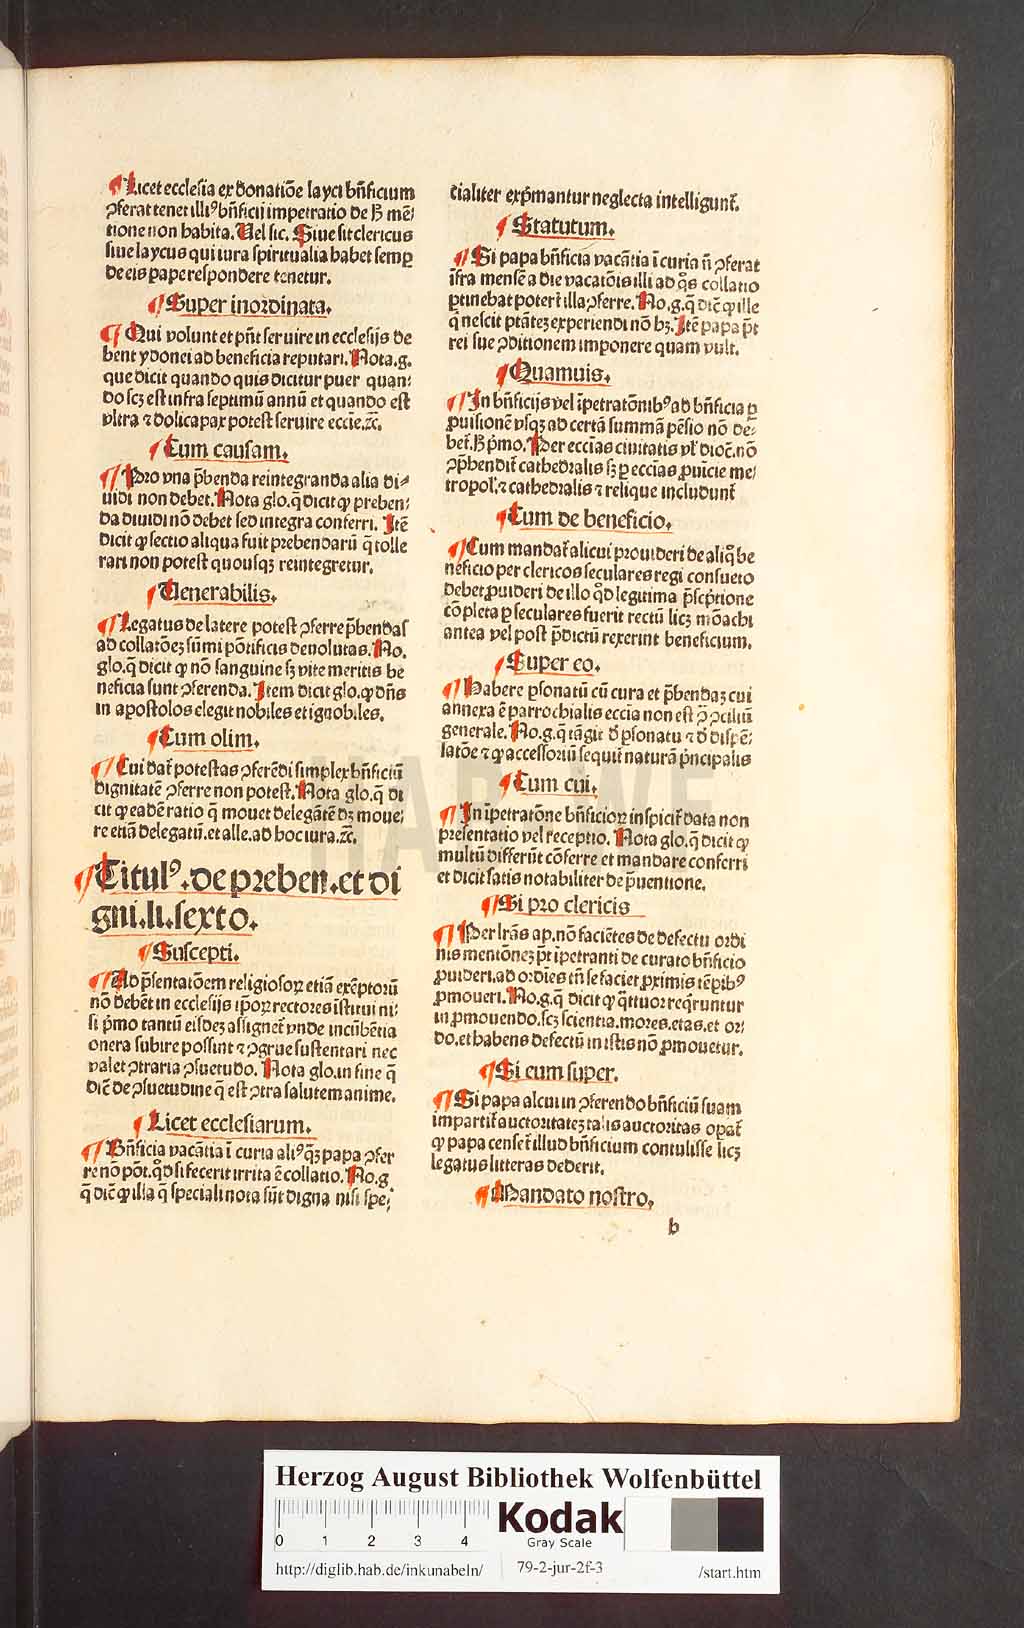 ¶ Licet ecclesia ex donatiōe layci bn̄ficium
ꝯferat tenet illiꝰ bn̄ficij impetratio de ꝭ mē⸗
tione non habita. Uel sic. Siue sit clericus
siue laycus qui iura spiritualia habet semꝑ
de eis pape respondere tenetur.
¶ Super inordinata.
¶ Qui volunt et pn̄t seruire in ecclesijs de
bent ydonei ad beneficia reputari. Nota.g.
que dicit quando quis dicitur puer quan⸗
do scꝫ est infra septimū annū et quando est
vltra ⁊ doli capax potest seruire eccie.ꝛc.
¶ Cum causam.
¶ Pro vna p̄benda reintegranda alia di⸗
uidi non debet. Nota glo.q̄ dicit ꝙ preben⸗
da diuidi nō debet sed integra conferri. Itē
dicit ꝙ sectio aliqua fuit prebendarū q̄ tolle
rari non potest quousqꝫ reintegretur.
¶ Uenerabilis.
¶ Legatus de latere potest ꝯferre p̄bendas
ad collatōeꝫ sūmi pōtificis deuolutas. No.
glo.q̄ dicit ꝙ nō sanguine sꝫ vite meritis be
neficia sunt ꝯferenda. Item dicit glo.ꝙ dn̄s
in apostolos elegit nobiles et ignobiles.
¶ Cum olim.
¶ Cui dat̄ potestas ꝯferēdi simplex bn̄ficiū
dignitatē ꝯferre non potest. Nota glo.q̄ di
cit ꝙ eadē ratio q̄ mouet delegātē dꝫ moue⸗
re etiā delegatū.et alle.ad hoc iura.ꝛc.
¶ Titulꝰ.de preben.et di
gni.li.sexto.
¶ Suscepti.
¶ Ad p̄sentatōem religiosoꝝ etiā exēptorū
nō debēt in ecclesijs ip̄oꝝ rectores īstitui ni⸗
si pͥmo tantū eisdeꝫ assignet̄ vnde incūbētia
onera subire possint ⁊ ꝯgrue sustentari nec
valet ꝯtraria ꝯsuetudo. Nota glo.in fine q̄
dic̄ de ꝯsuetudine q̄ est ꝯtra salutem anime.
¶ Licet ecclesiarum.
¶ Bn̄ficia vacātia ī curia aliꝰ qꝫ papa ꝯfer
re nō pōt.qd̄ si fecerit irrita ē collatio. No.g
q̄ dic̄ ꝙ illa q̄ speciali nota sūt digna nisi spe⸗
cialiter expͥmantur neglecta intelligunt̄.
¶ Statutum.
¶ Si papa bn̄ficia vacātia ī curia n̄ ꝯferat
īfra mensē a die vacatōis illi ad q̄s collatio
ꝑtinebat potert̄ illa ꝯferre. No.g.q̄ dic̄ ꝙ ille
q̄ nescit ptāteꝫ experiendi nō hꝫ. Itē papa p̄t
rei sue ꝯditionem imponere quam vult.
¶ Quamuis.
¶ In bn̄ficijs vel īpetratōnibꝰ ad bn̄ficia ꝑ
ꝓuisionē vsqꝫ ad certā summā pēsio nō de⸗
bet̄. ꝭ pͥmo. Per eccias ciuitatis vl̄ dioc̄.nō
ꝯp̄hendit̄ cathedralis sꝫ ꝑ eccias ꝓuicie me⸗
tropol̄.⁊ cathedralis ⁊ relique includunt̄
¶ Cum de beneficio.
¶ Cum mandat̄ alicui prouideri de aliq̄ be
neficio per clericos seculares regi consueto
debet ꝓuideri de illo qd̄ legitima p̄scp̄tione
cōpleta ꝑ seculares fuerit rectū licꝫ mōachi
antea vel post p̄dictū rexerint beneficium.
¶ Super eo.
¶ Habere ꝑsonatū cū cura et p̄bendaꝫ cui
annexa ē parrochialis eccia non est ꝯ ꝯciliū
generale. No.g.q̄ tāgit d̄ ꝑsonatu ⁊ d̄ dispē⸗
satōe ⁊ ꝙ accessoriū sequit̄ naturā pͥncipalis
¶ Cum cui.
¶ In īpetratōne bn̄ficioꝝ inspicit̄ data non
presentatio vel receptio. Nota glo.q̄ dicit ꝙ
multū differūt cōferre et mandare conferri
et dicit satis notabiliter de p̄uentione.
¶ Si pro clericis
¶ Per lr̄as ap.nō faciētes de defectu ordi
nis mentōneꝫ p̄t īpetranti de curato bn̄ficio
ꝓuideri.ad ordies tn̄ se faciet ꝓximis tēpibꝰ
ꝓmoueri. No.g.q̄ dicit ꝙ q̄ttuor reqͥruntur
in ꝓmouendo.scꝫ scientia.mores.etas.et or⸗
do.et habens defectū in istis nō ꝓmouetur.
¶ Si eum super.
¶ Si papa alcui in ꝯferendo bn̄ficiū suam
impartit̄ auctoritateꝫ talis auctoritas opat̄
ꝙ papa censet̄ illud bn̄ficium contulisse licꝫ
legatus litteras dederit.
¶ Mandato nostro.
b
HAB WF
Herzog August Bibliothek Wolfenbüttel
0 1 2 3 4
Kodak
Gray Scale
http://diglib.hab.de/inkunabeln/ 79-2-jur-2f-3 /start.htm